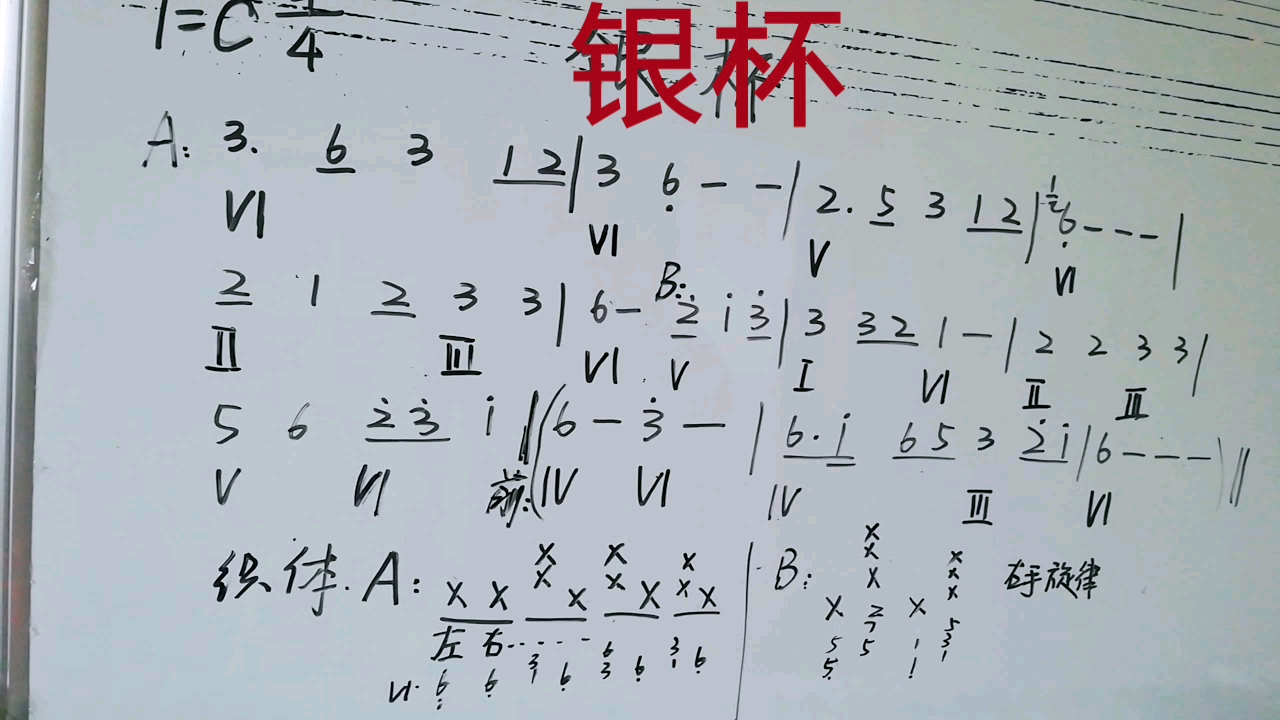 1=C 4/4
银杯
A: 3. 6 3 1 2 | 3 6 - - | 2. 5 3 1 2 | 12 6 - - - |
VI VI V VI
2 1 2 3 3 | 6 - B: 2 i 3 | 3 3 2 1 - | 2 2 3 3 |
II III VI V I VI II III
5 6 2 3 i ‖ (6 - 3 - | 6. i 6 5 3 2 i | 6 - - - ) ‖
V VI 前: (IV VI IV III VI
织体. A: X X X X X X X X X X X B: X X X X X X X X 右手旋律
左 右 - - - -
VI. 6 6 3 1 6 6 3 6 3 1 6 5 5 2 7 5 1 1 5 3 1